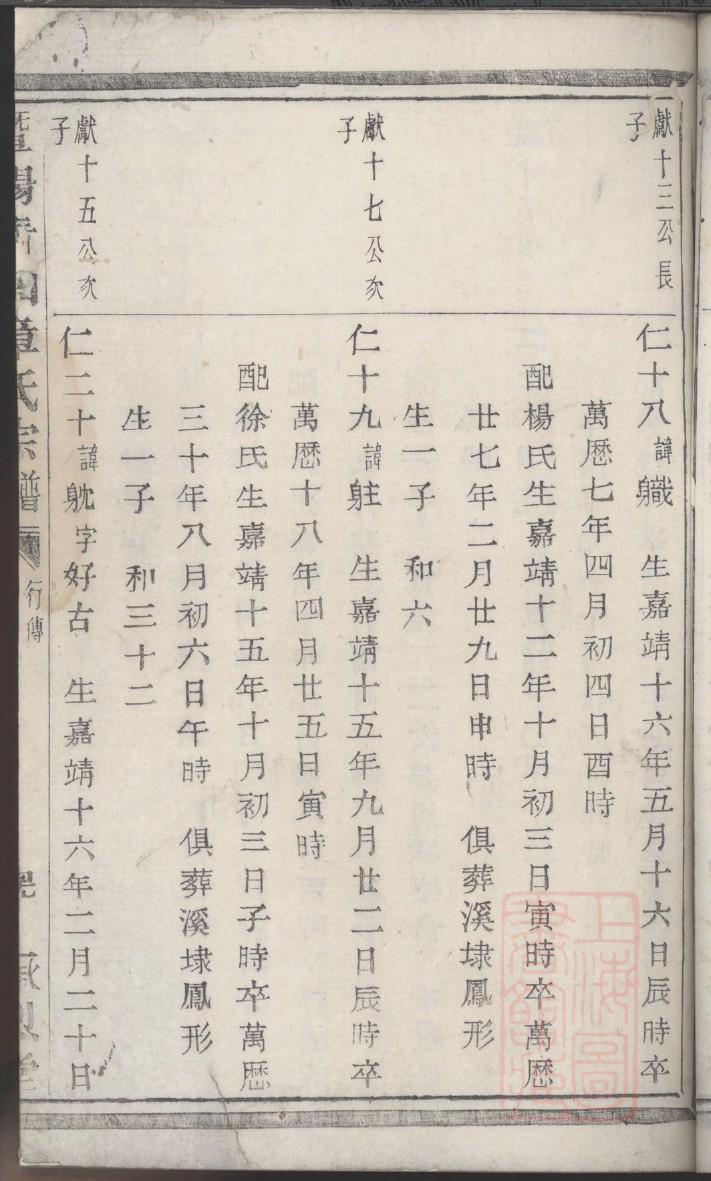 獻十三公長
子
仁十八諱軄　生嘉靖十六年五月十六日辰時卒
萬歷七年四月初四日酉時
配楊氏生嘉靖十二年十月初三日寅時卒萬歷
廿七年二月廿九日申時　俱葬溪埭鳳形
生一子　和六
獻十七公次
子
仁十九諱䠱　生嘉靖十五年九月廿二日辰時卒
萬歷十八年四月廿五日寅時
配徐氏生嘉靖十五年十月初三日子時卒萬歷
三十年八月初六日午時　俱葬溪埭鳳形
生一子　和三十二
獻十五公次
子
仁二十諱躭字好古　生嘉靖十六年二月二十日
章氏宗譜
行傳
上海圖書館藏